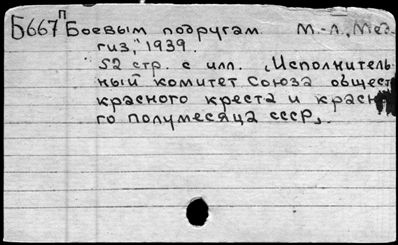 Б667п Боевым подругам. М.-Л., Мед-
гиз, 1939.
52 стр. с илл. (Исполнитель-
ный комитет Союза общест
красного креста и красно
го полумесяца СССР).